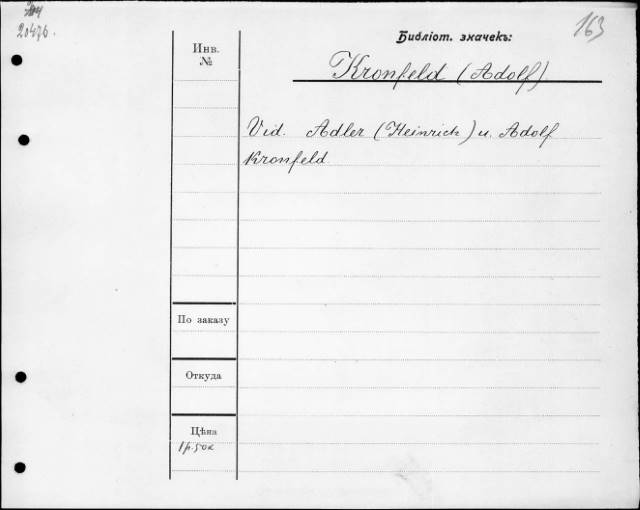 20476.
163
Библіот. значекъ:
Инв.
№
Kronfeld (Adolf)
Vid. Adler (Heinrich) u. Adolf
Kronfeld
По заказу
Откуда
Цѣна
1 р. 50 к